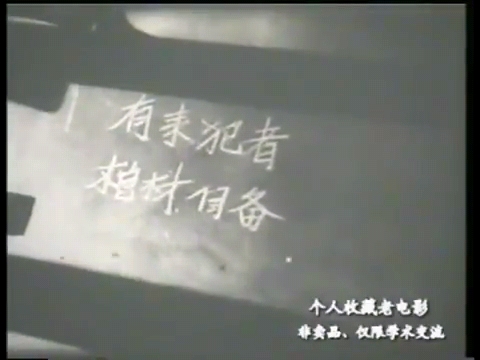 有来犯者
棺材伺备
个人收藏老电影
非卖品、仅限学术交流